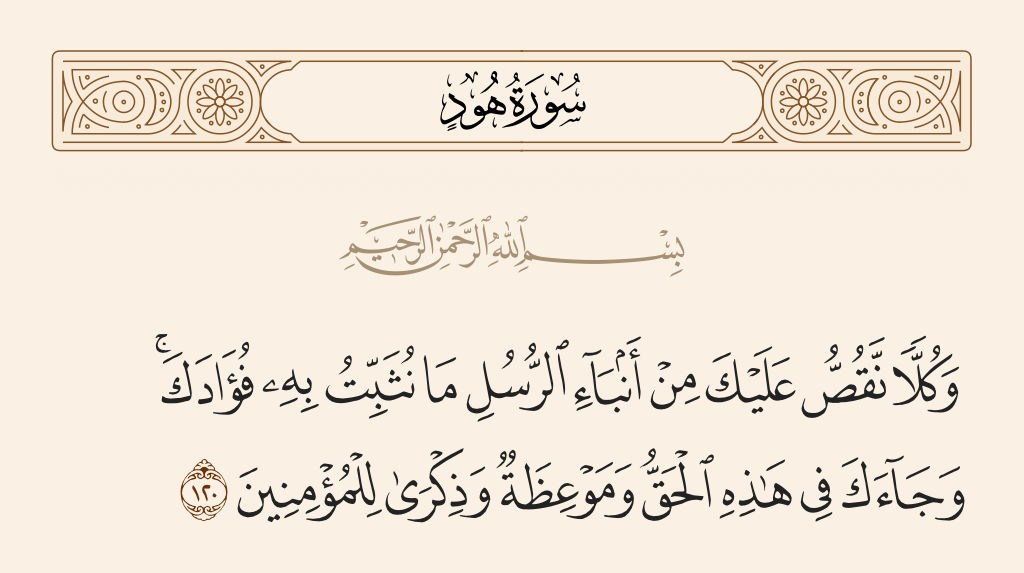 سُورَةُ هُودٍ
بِسْمِ ٱللَّهِ ٱلرَّحْمَٰنِ ٱلرَّحِيمِ
وَكُلًّا نَّقُصُّ عَلَيْكَ مِنْ أَنۢبَآءِ ٱلرُّسُلِ مَا نُثَبِّتُ بِهِۦ فُؤَادَكَ ۚ
وَجَآءَكَ فِى هَٰذِهِ ٱلْحَقُّ وَمَوْعِظَةٌ وَذِكْرَىٰ لِلْمُؤْمِنِينَ ١٢٠